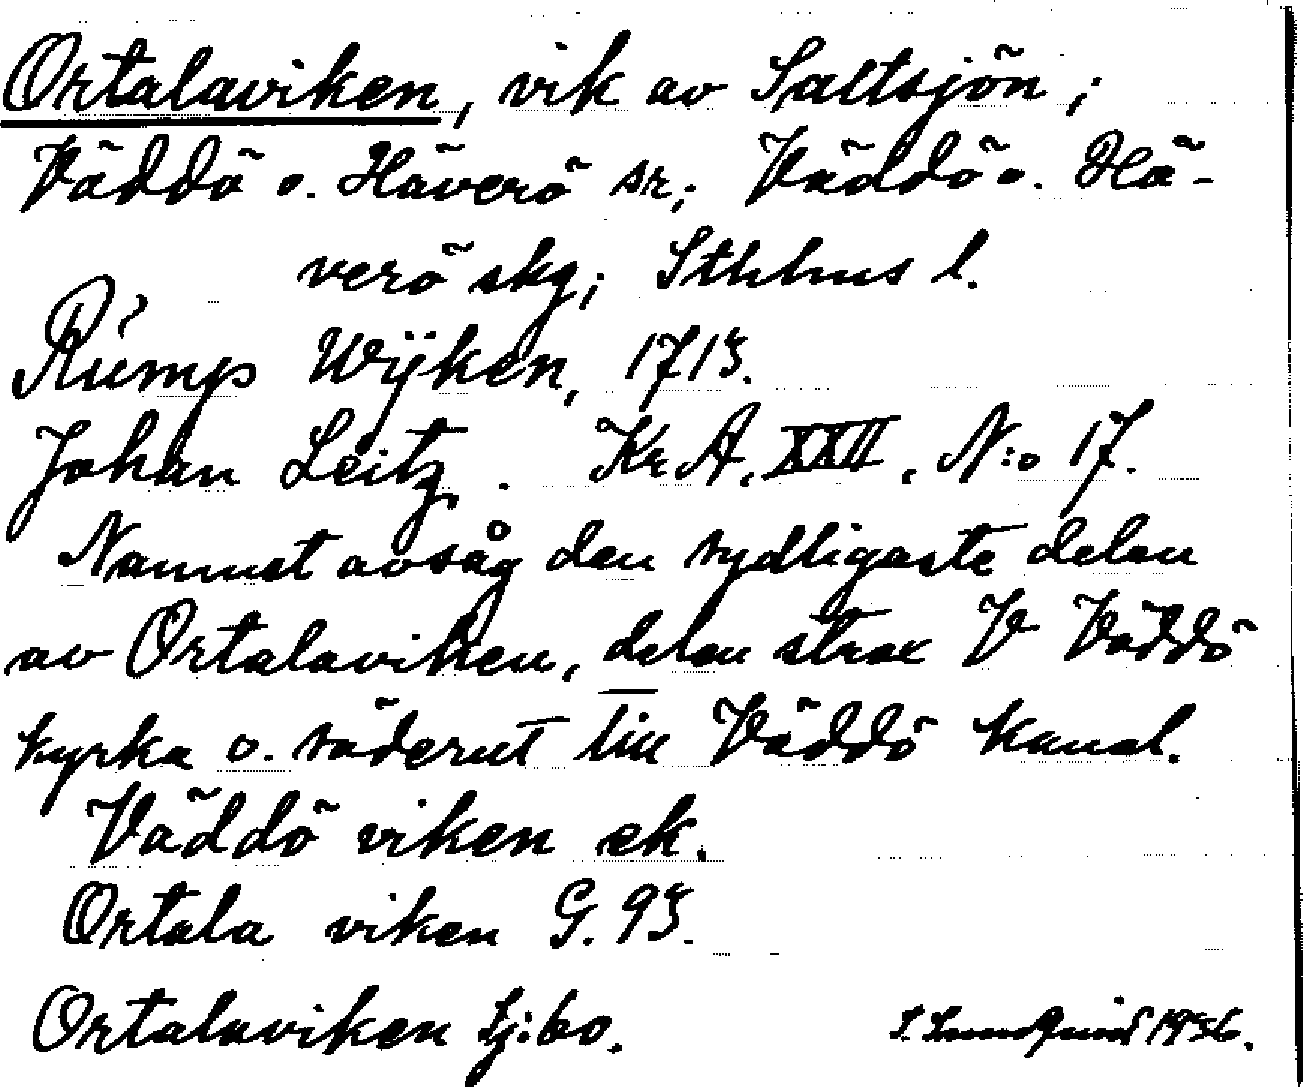 Ortalaviken, vik av Saltsjön;
Väddö o. Häverö sr; Väddö o. Hä-
verö skg; Sthlms l.
Rümps Wijken, 1715.
Johan Leitz. Kr A. XXII. N:o 17.
Namnet avsåg den sydligaste delen
av Ortalaviken, delen strax V Väddö
kyrka o. söderut till Väddö kanal.
Väddö viken ek.
Ortala viken G. 95.
Ortalaviken Lj:bo.
1956.